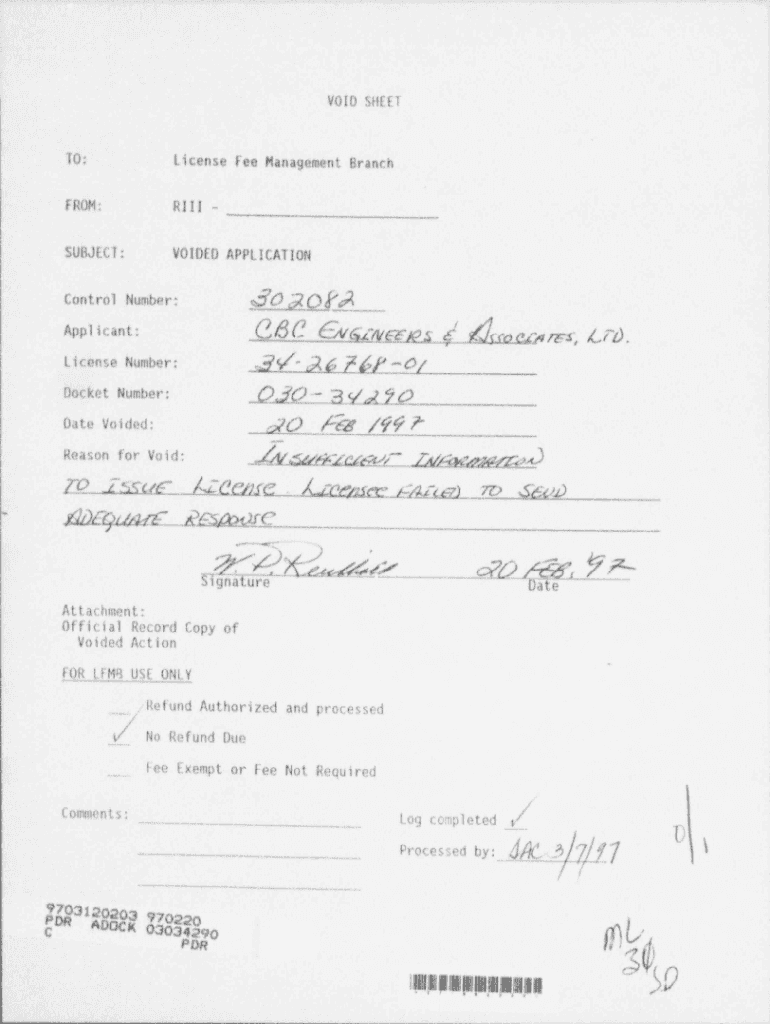 VOID SHEET
TO: License Fee Management Branch
FROM: RIII -
SUBJECT: VOIDED APPLICATION
Control Number: 302082
Applicant: CBC ENGINEERS & ASSOCIATES, LTD.
License Number: 34-26768-01
Docket Number: 030-34290
Date Voided: 20 FEB 1997
Reason for Void: INSUFFICIENT INFORMATION
TO ISSUE LICENSE. LICENSEE FAILED TO SEND
ADEQUATE RESPONSE
W.P. 20 FEB. '97
Signature Date
Attachment:
Official Record Copy of
Voided Action
FOR LFMB USE ONLY
Refund Authorized and processed
✓ No Refund Due
Fee Exempt or Fee Not Required
Comments:
Log completed ✓
Processed by: SAC 3/7/97
9703120203 970220
PDR ADOCK 03034290
C PDR
ML